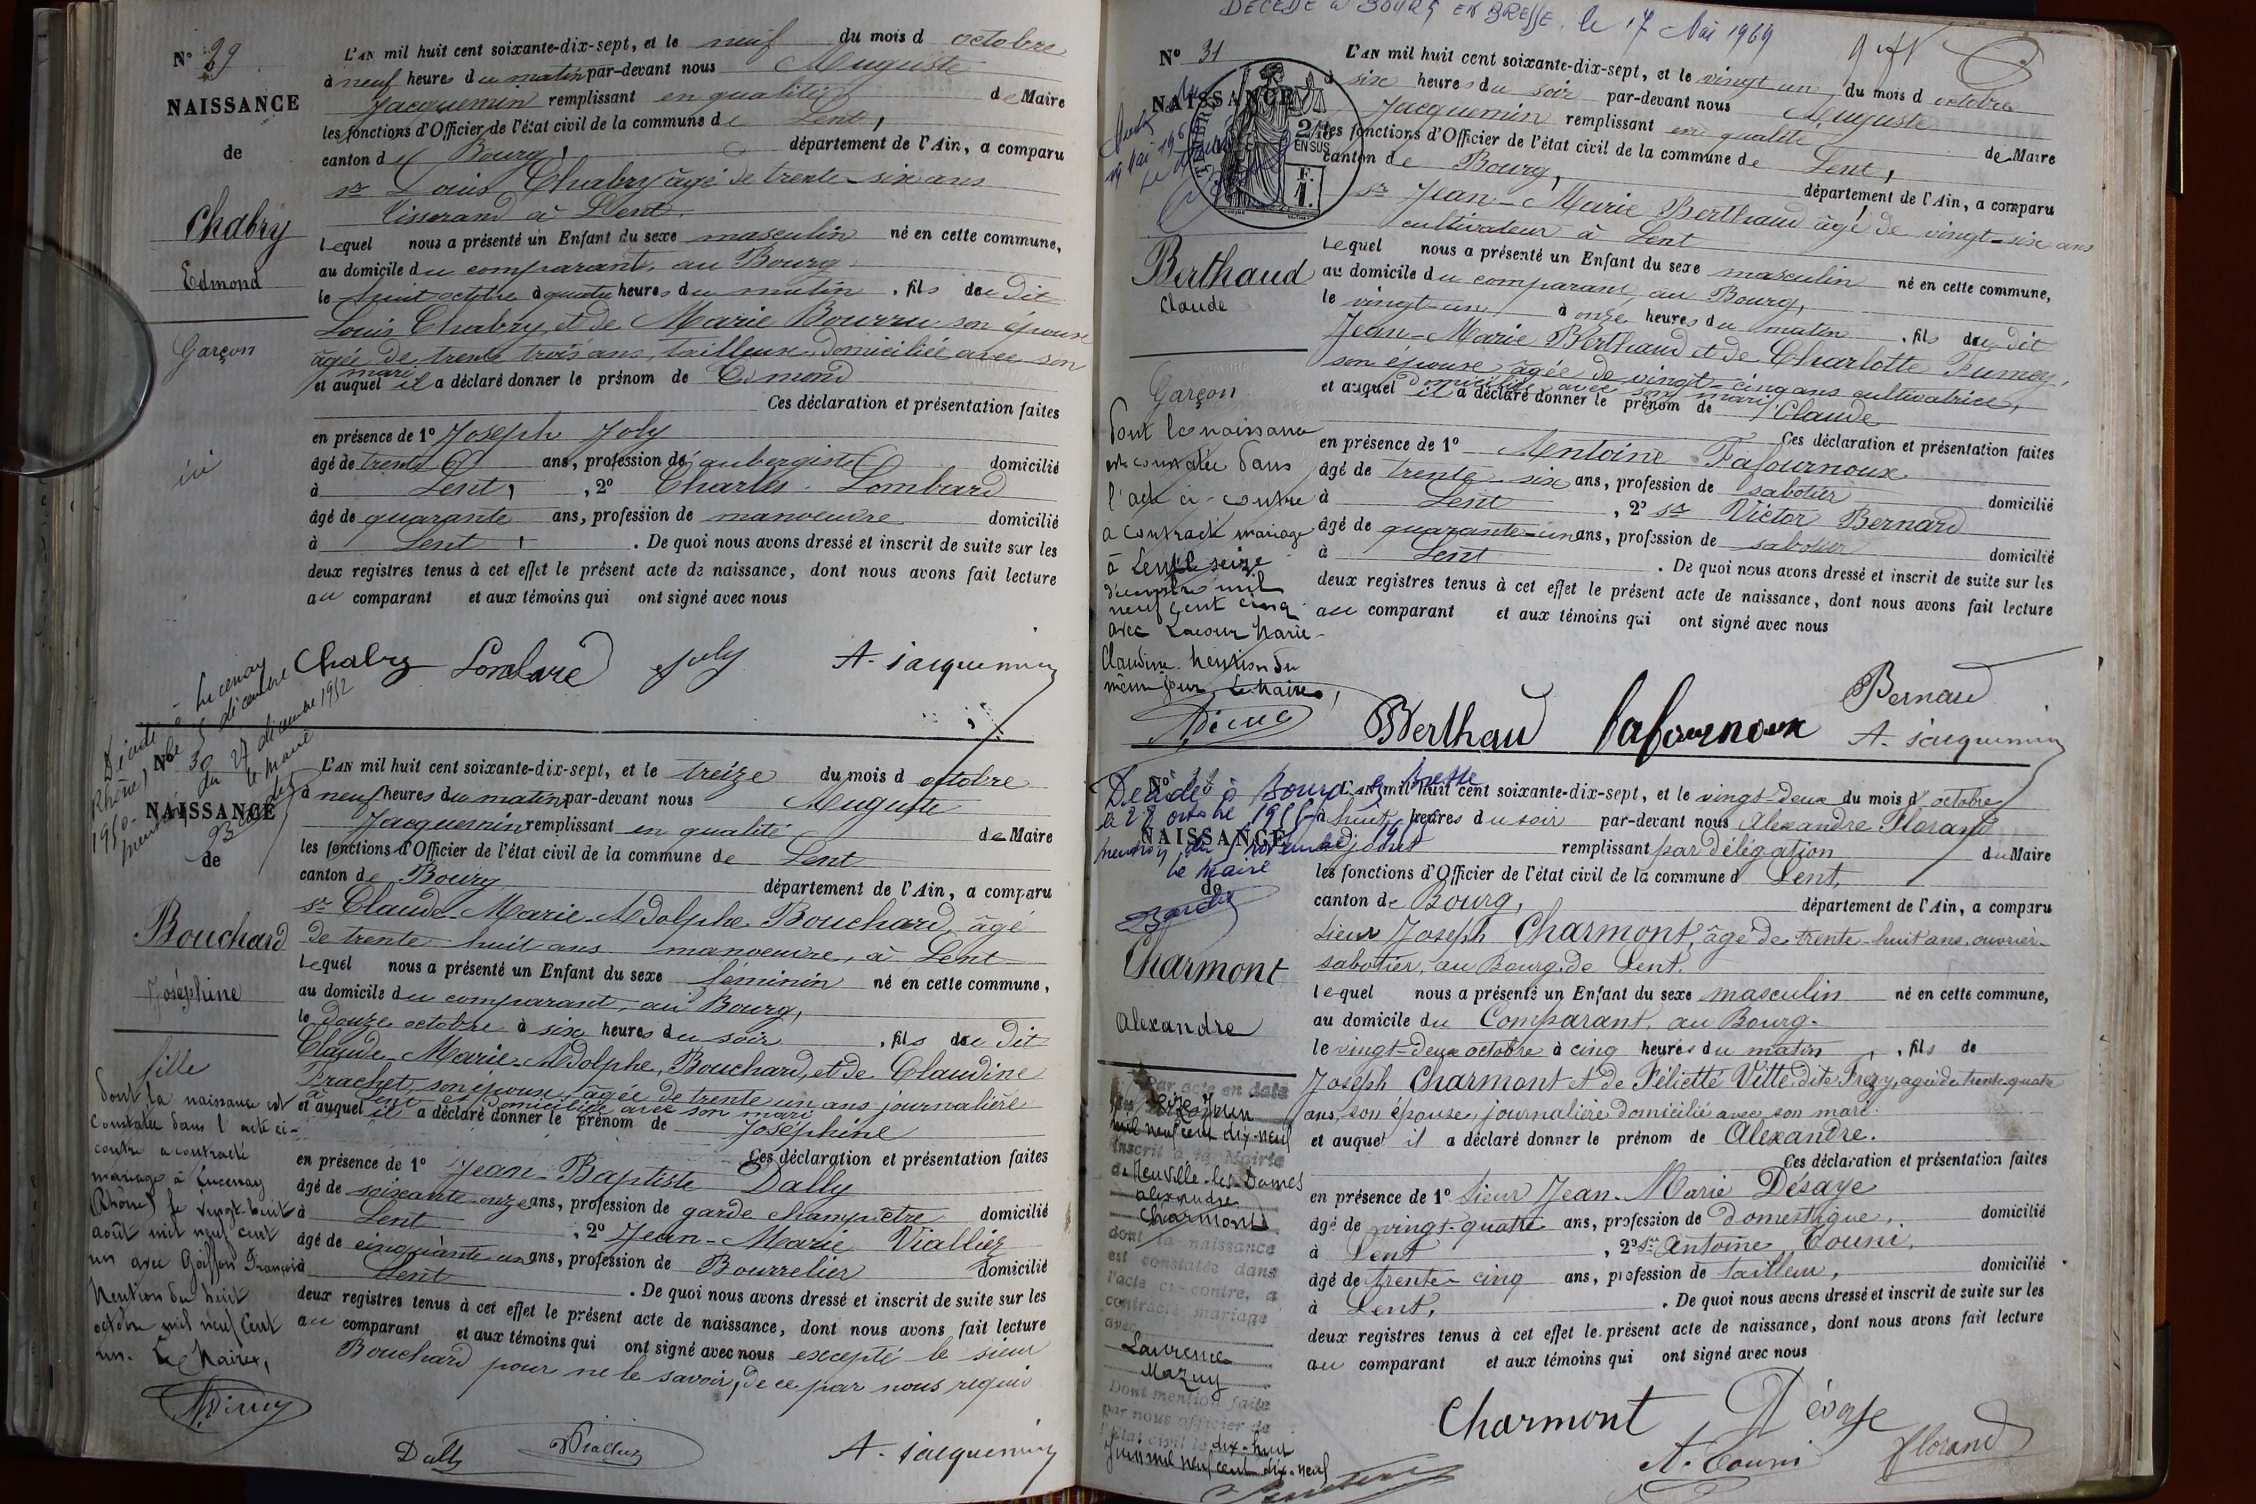 N° 29
NAISSANCE
de
Chabry
Edmond
Garçon
L'AN mil huit cent soixante-dix-sept, et le neuf du mois d octobre
à neuf heures du matin par-devant nous Auguste
Jacquemin remplissant en qualité de Maire
les fonctions d'Officier de l'état civil de la commune de Lent,
canton de Bourg, département de l'Ain, a comparu
sr Louis Chabry âgé de trente-six ans
tisserand à Lent.
Lequel nous a présenté un Enfant du sexe masculin né en cette commune,
au domicile du comparant, au Bourg
le huit octobre à quatre heures du matin, fils du dit
Louis Chabry, et de Marie Bourru son épouse
âgée de trente trois ans, tailleuse domiciliée avec son
mari
et auquel il a déclaré donner le prénom de Edmond
Ces déclaration et présentation faites
en présence de 1° Joseph Joly
âgé de trente ans, profession d'aubergiste domicilié
à Lent, , 2° Charles Lombard
âgé de quarante ans, profession de manoeuvre domicilié
à Lent . De quoi nous avons dressé et inscrit de suite sur les
deux registres tenus à cet effet le présent acte de naissance, dont nous avons fait lecture
au comparant et aux témoins qui ont signé avec nous
Chabry Lombard Joly A. Jacquemin
Décédée à Lucenay
(Rhône) le 5 décembre
1950
mention du 27 décembre 1952
le Maire
N° 30
NAISSANCE
de
Bouchard
Joséphine
fille
dont la naissance est
constatée dans l'acte ci-
contre a contracté
mariage à Lucenay
(Rhône) le vingt-huit
août mil neuf cent
un avec Goiffon François
Mention du huit
octobre mil neuf cent
un. Le Maire,
L'AN mil huit cent soixante-dix-sept, et le treize du mois d octobre
à neuf heures du matin par-devant nous Auguste
Jacquemin remplissant en qualité de Maire
les fonctions d'Officier de l'état civil de la commune de Lent
canton de Bourg département de l'Ain, a comparu
sr Claude-Marie-Adolphe Bouchard, âgé
de trente-huit ans manoeuvre, à Lent
Lequel nous a présenté un Enfant du sexe féminin né en cette commune,
au domicile du comparant, au Bourg,
le douze octobre à six heures du soir, fils du dit
Claude-Marie-Adolphe, Bouchard, et de Claudine
Brachet, son épouse, âgée de trente un ans journalière
à Lent et domiciliée avec son mari
et auquel il a déclaré donner le prénom de Joséphine
Ces déclaration et présentation faites
en présence de 1° Jean-Baptiste Dally
âgé de soixante-onze ans, profession de garde champêtre domicilié
à Lent , 2° Jean-Marie Viallier
âgé de cinquante un ans, profession de Bourrelier domicilié
à Lent . De quoi nous avons dressé et inscrit de suite sur les
deux registres tenus à cet effet le présent acte de naissance, dont nous avons fait lecture
au comparant et aux témoins qui ont signé avec nous excepté le sieur
Bouchard pour ne le savoir, de ce par nous requis
Dally Viallier A. Jacquemin
DECEDE à BOURG EN BRESSE le 17 Mai 1969
N° 31
NAISSANCE
TIMBRE
2/10es
EN SUS
F.
1.
Berthaud
Claude
Garçon
dont la naissance
est constatée dans
l'acte ci-contre
a contracté mariage
à Lent le seize
décembre mil
neuf cent cinq
avec Lacour Marie-
Claudine. Mention du
même jour. Le Maire,
L'AN mil huit cent soixante-dix-sept, et le vingt-un du mois d octobre
à six heures du soir par-devant nous Auguste
Jacquemin remplissant en qualité de Maire
les fonctions d'Officier de l'état civil de la commune de Lent,
canton de Bourg, département de l'Ain, a comparu
sr Jean-Marie Berthaud âgé de vingt-six ans
cultivateur à Lent
Lequel nous a présenté un Enfant du sexe masculin né en cette commune,
au domicile du comparant, au Bourg,
le vingt-un à onze heures du matin, fils du dit
Jean-Marie Berthaud et de Charlotte Fumey,
son épouse âgée de vingt-cinq ans cultivatrice,
domiciliée avec son mari
et auquel il a déclaré donner le prénom de Claude
Ces déclaration et présentation faites
en présence de 1° Antoine Lafournoux
âgé de trente-six ans, profession de sabotier domicilié
à Lent , 2° sr Victor Bernard
âgé de quarante-un ans, profession de sabotier domicilié
à Lent . De quoi nous avons dressé et inscrit de suite sur les
deux registres tenus à cet effet le présent acte de naissance, dont nous avons fait lecture
au comparant et aux témoins qui ont signé avec nous
Berthaud Lafournoux Bernard
A. Jacquemin
Décédé à Bourg en Bresse
le 28 octobre
le Maire
N° 32
NAISSANCE
de
Charmont
Alexandre
Par acte en date
du seize Juin
mil neuf cent dix-neuf
inscrit à la Mairie
de Neuville-les-Dames
Alexandre
Charmont
dont la naissance
est constatée dans
l'acte ci-contre, a
contracté mariage
avec
Laurence
Mazuy
Dont mention faite
par nous officier de
l'état civil le dix-huit
Juin mil neuf cent dix-neuf
L'AN mil huit cent soixante-dix-sept, et le vingt-deux du mois d'octobre
à huit heures du soir par-devant nous Alexandre Florand
adjoint remplissant par délégation du Maire
les fonctions d'Officier de l'état civil de la commune d Lent,
canton de Bourg, département de l'Ain, a comparu
Sieur Joseph Charmont, âgé de trente-huit ans, ouvrier
sabotier, au Bourg de Lent.
Lequel nous a présenté un Enfant du sexe masculin né en cette commune,
au domicile du Comparant, au Bourg.
le vingt-deux octobre à cinq heures du matin, fils de
Joseph Charmont et de Féliette Vitte dite Frézy, agée de trente quatre
ans, son épouse, journalière domicilié avec son mari.
et auquel il a déclaré donner le prénom de Alexandre.
Ces déclaration et présentation faites
en présence de 1° Sieur Jean-Marie Désaye
âgé de vingt-quatre ans, profession de domestique, domicilié
à Lent , 2° Sr Antoine Couni,
âgé de trente-cinq ans, profession de tailleur, domicilié
à Lent. . De quoi nous avons dressé et inscrit de suite sur les
deux registres tenus à cet effet le présent acte de naissance, dont nous avons fait lecture
au comparant et aux témoins qui ont signé avec nous
Charmont Désaye
A. Couni Florand